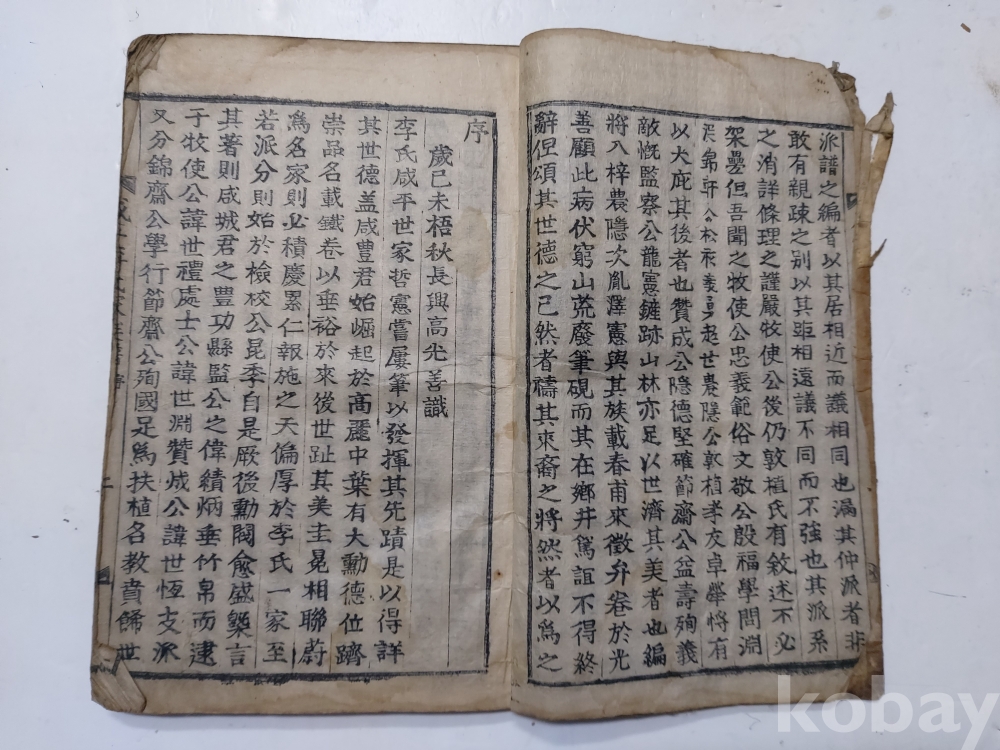 派譜之編者以其居相近而議相同也漏其仲派者非
敢有親疎之別以其距相遠議不同而不強也其派系
之消詳條理之謹嚴牧使公後仍敦植氏有敘述不必
架疊但吾聞之牧使公忠義範俗文敬公殷福學問淵
起世農隱公郭植孝友卓犖將有
以大庇其後者也贊成公隱德堅確節齋公益壽殉義
敵愾監察公龍憲鏟跡山林亦足以世濟其美者也編
將入梓農隱次胤澤憲與其族載春甫來徵弁卷於光
善顧此病伏窮山荒廢筆硯而其在鄉井篤誼不得終
辭但頌其世德之已然者禱其來裔之將然者以爲之
序
歲己未梧秋長興高光善識
李氏咸平世家哲憲嘗屢筆以發揮其先蹟是以得詳
其世德盖咸豊君始崛起於高麗中葉有大勳德位躋
崇品名載鐵卷以垂裕於來後世趾其美圭冕相聯蔚
爲名家則必積慶累仁報施之天偏厚於李氏一家至
若派分則始於檢校公昆季自是厥後勳閥愈盛槩言
其著則咸城君之豊功縣監公之偉績炳垂竹帛而逮
于牧使公諱世禮處士公諱世淵贊成公諱世恆支派
又分錦齋公學行節齋公殉國足爲扶植名教賁餙世
序
二